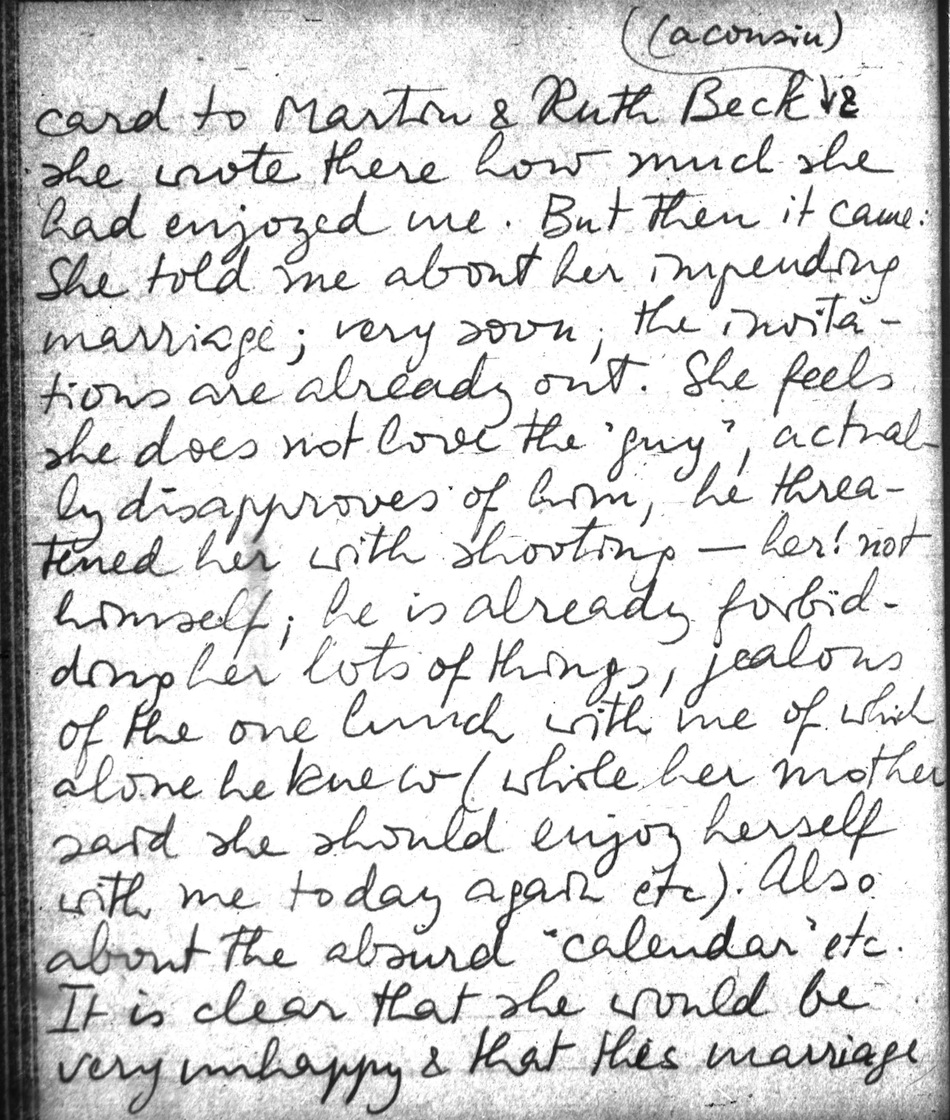 (a cousin)
card to Martin & Ruth Beck &
she wrote there how much she
had enjoyed me. But then it came:
She told me about her impending
marriage; very soon; the invita-
tions are already out. She feels
she does not love the "guy", actual-
ly disapproves of him, he threa-
tened her with shooting — her! not
himself; he is already forbid-
ding her lots of things, jealous
of the one lunch with me of which
alone he knew (while her mother
said she should enjoy herself
with me today again etc). Also
about the absurd "calendar" etc.
It is clear that she would be
very unhappy & that this marriage